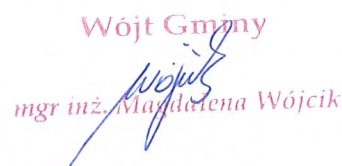 Wójt Gminy
Wójcik
mgr inż. Magdalena Wójcik